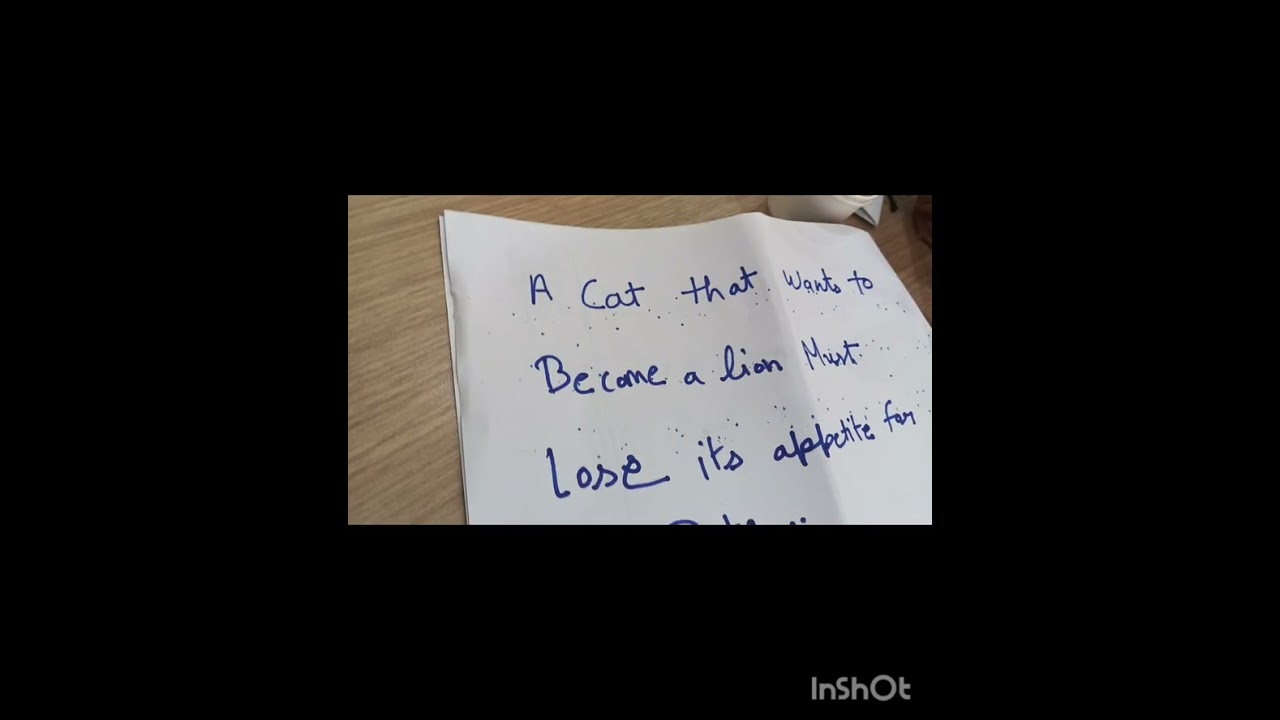 A Cat that Wants to
Become a lion Must
Lose its appetite for
InShOt